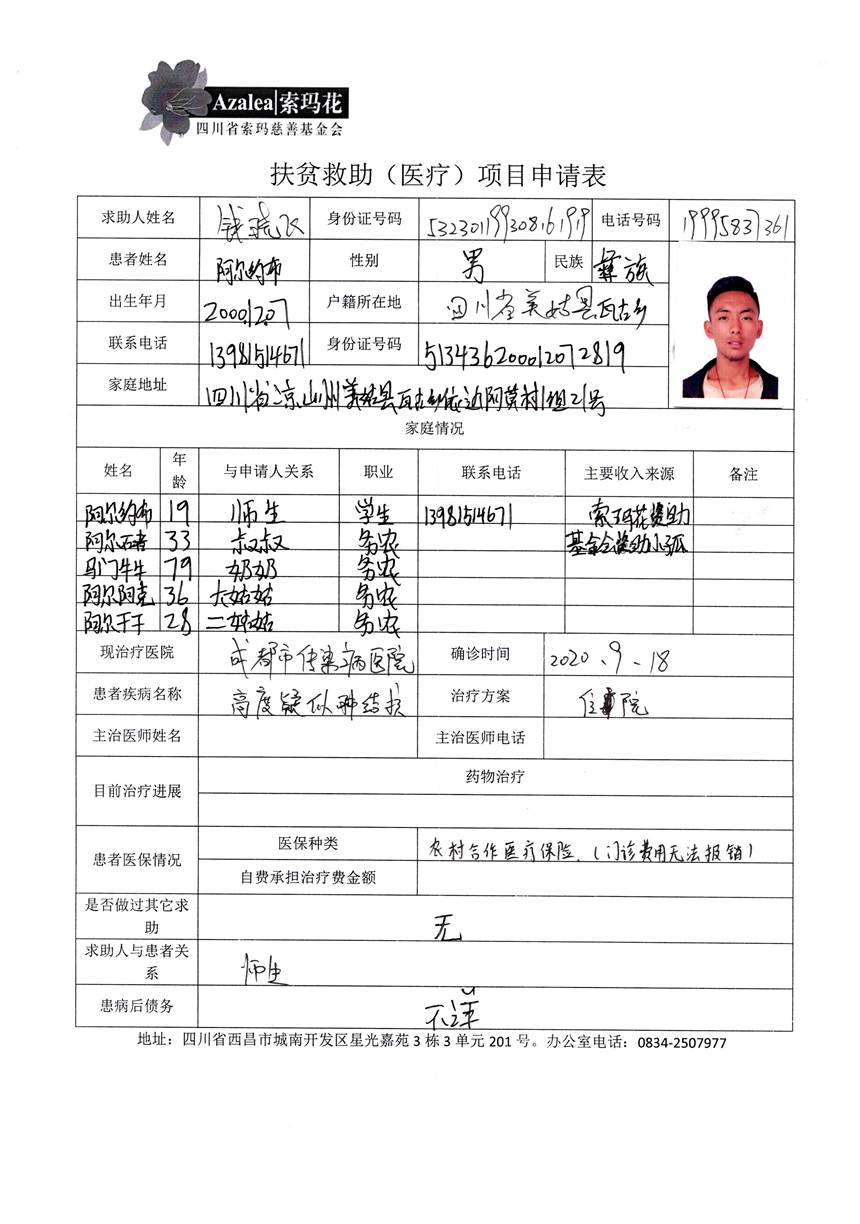 Azalea|索玛花
四川省索玛慈善基金会
扶贫救助（医疗）项目申请表
求助人姓名 钱 飞 身份证号码 532301199308161919 电话号码 19995837361
患者姓名 阿尔约布 性别 男 民族 彝族
出生年月 20001207 户籍所在地 四川省美姑县瓦古乡
联系电话 13981514671 身份证号码 513436200012072819
家庭地址 四川省凉山州美姑县瓦古乡依达阿莫村1组21号
家庭情况
姓名 年龄 与申请人关系 职业 联系电话 主要收入来源 备注
阿尔约布 19 师生 学生 13981514671 索玛花资助
阿尔石者 33 叔叔 务农 基金会资助小孤
马门牛牛 79 奶奶 务农
阿尔阿克 36 大姑姑 务农
阿尔干干 28 二姑姑 务农
现治疗医院 成都市传染病医院 确诊时间 2020、9、18
患者疾病名称 高度疑似肿结核 治疗方案 住院
主治医师姓名 主治医师电话
目前治疗进展 药物治疗
患者医保情况 医保种类 农村合作医疗保险.（门诊费用无法报销）
自费承担治疗费金额
是否做过其它求助 无
求助人与患者关系 师生
患病后债务 不详
地址：四川省西昌市城南开发区星光嘉苑3栋3单元201号。办公室电话：0834-2507977